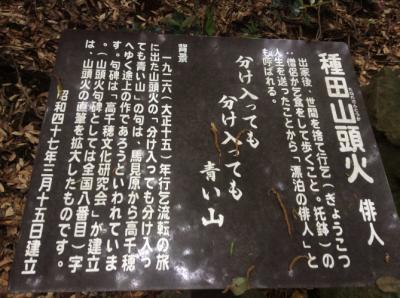 種田山頭火 俳人
出家後、世間を捨て行乞（ぎょうこつ
：僧侶が乞食をして歩くこと。托鉢）の
人生を送ったことから「漂泊の俳人」と
も呼ばれる。
分け入っても
分け入っても
青い山
背景
一九二六（大正十五）年行乞流転の旅
に出た山頭火の「分け入っても分け入っ
ても青い山」の句は、馬見原から高千穂
へゆく途上の作であろうといわれていま
す。句碑は「高千穂文化研究会」が建立
。（山頭火句碑としては全国八番目）字
は、山頭火の直筆を拡大したものです。
昭和四十七年三月十五日建立